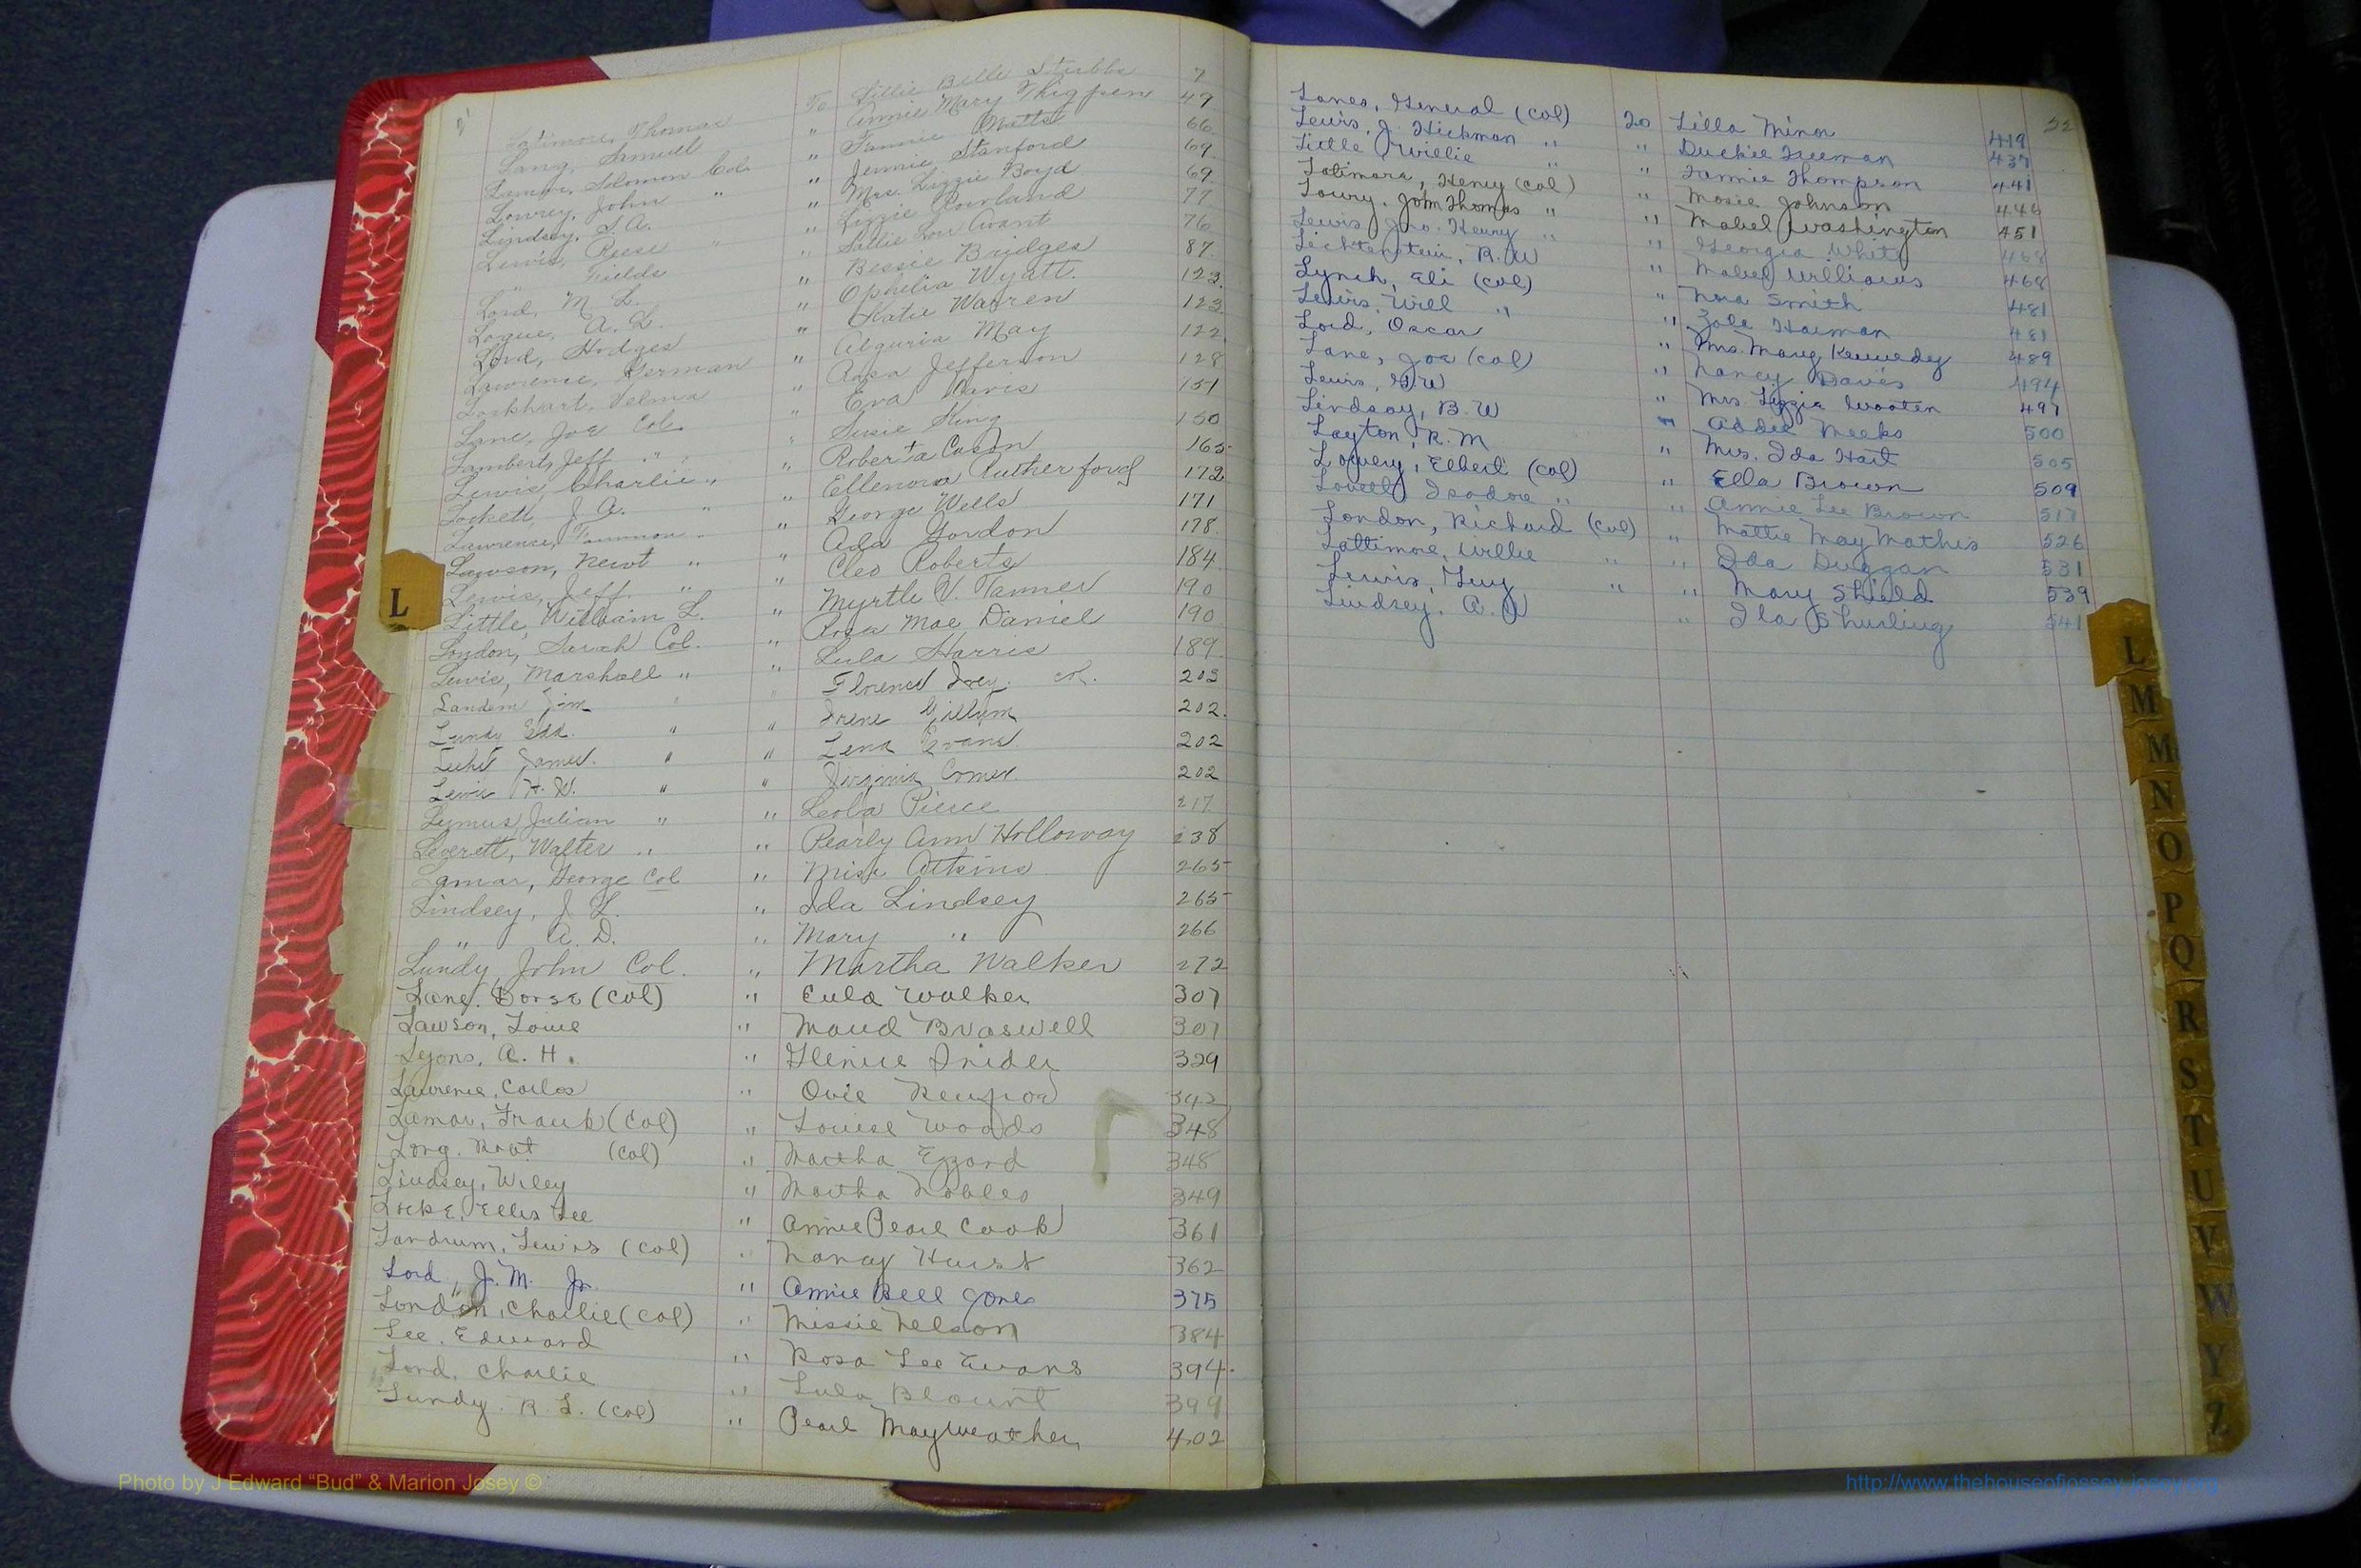 Latimore, Thomas To Lillie Belle Stubbs 7
Lang, Samuel " Annie Mary Thigpen 49
Lamar, Solomon Col. " Fannie Watts 66
Lowrey, John " " Jennie Stanford 69
Lindsey, S. A. " Mrs. Lizzie Boyd 69
Lewis, Reese " " Lizzie Rowland 77
" Fields " Sallie Lou Avant 76
Lord, M. L. " Bessie Bridges 87
Logue, A. L. " Ophelia Wyatt. 123
Lord, Hodges " Katie Warren 123
Lawrence, German " Alguria May 122
Lockhart, Velma " Rosa Jefferson 128
Lane, Joe Col. " Eva Davis 151
Lambert, Jeff " " Susie King 150
Lewis, Charlie " " Roberta Cason 165
Lockett, J. A. " " Ellenora Rutherford 172
Lawrence, " George Wells 171
Lawson, Newt " " Ada Gordon 178
Lewis, Jeff. " " Cleo Roberts 184
Little, William L. " Myrtle V. Tanner 190
London, Sarah Col. " Rosa Mae Daniel 190
Lewis, Marshall " " Lula Harris 189
Landem Jim " " Florence Ivey. col. 203
Lundy Edd. " " Irene Gillum 202
James. " " Lena Evans 202
Lewis H. W. " " Virginia Comer 202
Lymus, Julian " " Leola Pierce 217
Leverett, Walter " " Pearly Ann Holloway 238
Lamar, George Col " Atkins 265
Lindsey, J. L. " Ida Lindsey 265
" A. D. " Mary " 266
Lundy, John Col. " Martha Walker 272
Lane, Dorse (Col) " Eula Walker 307
Lawson, Lowe " Maud Braswell 307
Lyons, A. H. " Glenice Snider 329
Lawrence, Carlos " Ovie 342
Lamar, Frank (Col) " Louise Woods 348
Long. Robt (Col) " Martha Ezzard 348
Lindsey, Wiley " Martha Nobles 349
Locke, Ellis Lee " Annie Pearl Cook 361
Landrum, Lewis (Col) " Nancy Hurst 362
Lord, J. M. Jr. " Annie Bell Jones 375
London, Charlie (Col) " Missie Nelson 384
Lee. Edward " Rosa Lee Evans 394
Lord, Charlie " Lula Blount 399
Lundy. R. L. (Col) " Pearl Mayweather 402
Lanes, General (Col) To Lilla Minor 419
Lewis, J. Hickman " " Duckie Freeman 437
Little, Willie " " Fannie Thompson 441
Latimore, Henry (Col) " Mosie Johnson 446
Lowry, John Thomas " " Mabel Washington 451
Lewis Jno. Henry " " Georgia White 468
Lechtenstein, R. W " Mabel Williams 468
Lynch, Eli (Col) " Nora Smith 481
Lewis, Will " " Zola Harman 481
Lord, Oscar " Mrs. Mary Kennedy 489
Lane, Joe (Col) " Nancy Daves 494
Lewis, G W " Mrs Lizzie Wooten 497
Lindsay, B. W " Addie Meeks 500
Layton, R. M " Mrs. Ida Hart 505
Lowery, Elbert (Col) " Ella Brown 509
Lovett, Isadore " " Annie Lee Brown 517
London, Richard (Col) " Mattie May Mathis 526
Lattimore, Willie " " Ida Duggan 531
Lewis, Guy " " Mary Shield 539
Lindsey, A. J " Ila Shurling 541
22
L
L
M
Mc
N
O
P
Q
R
S
T
U
V
W
Y
Z
Photo by J Edward “Bud” & Marion Josey ©
http://www.thehouseofjossey-josey.org